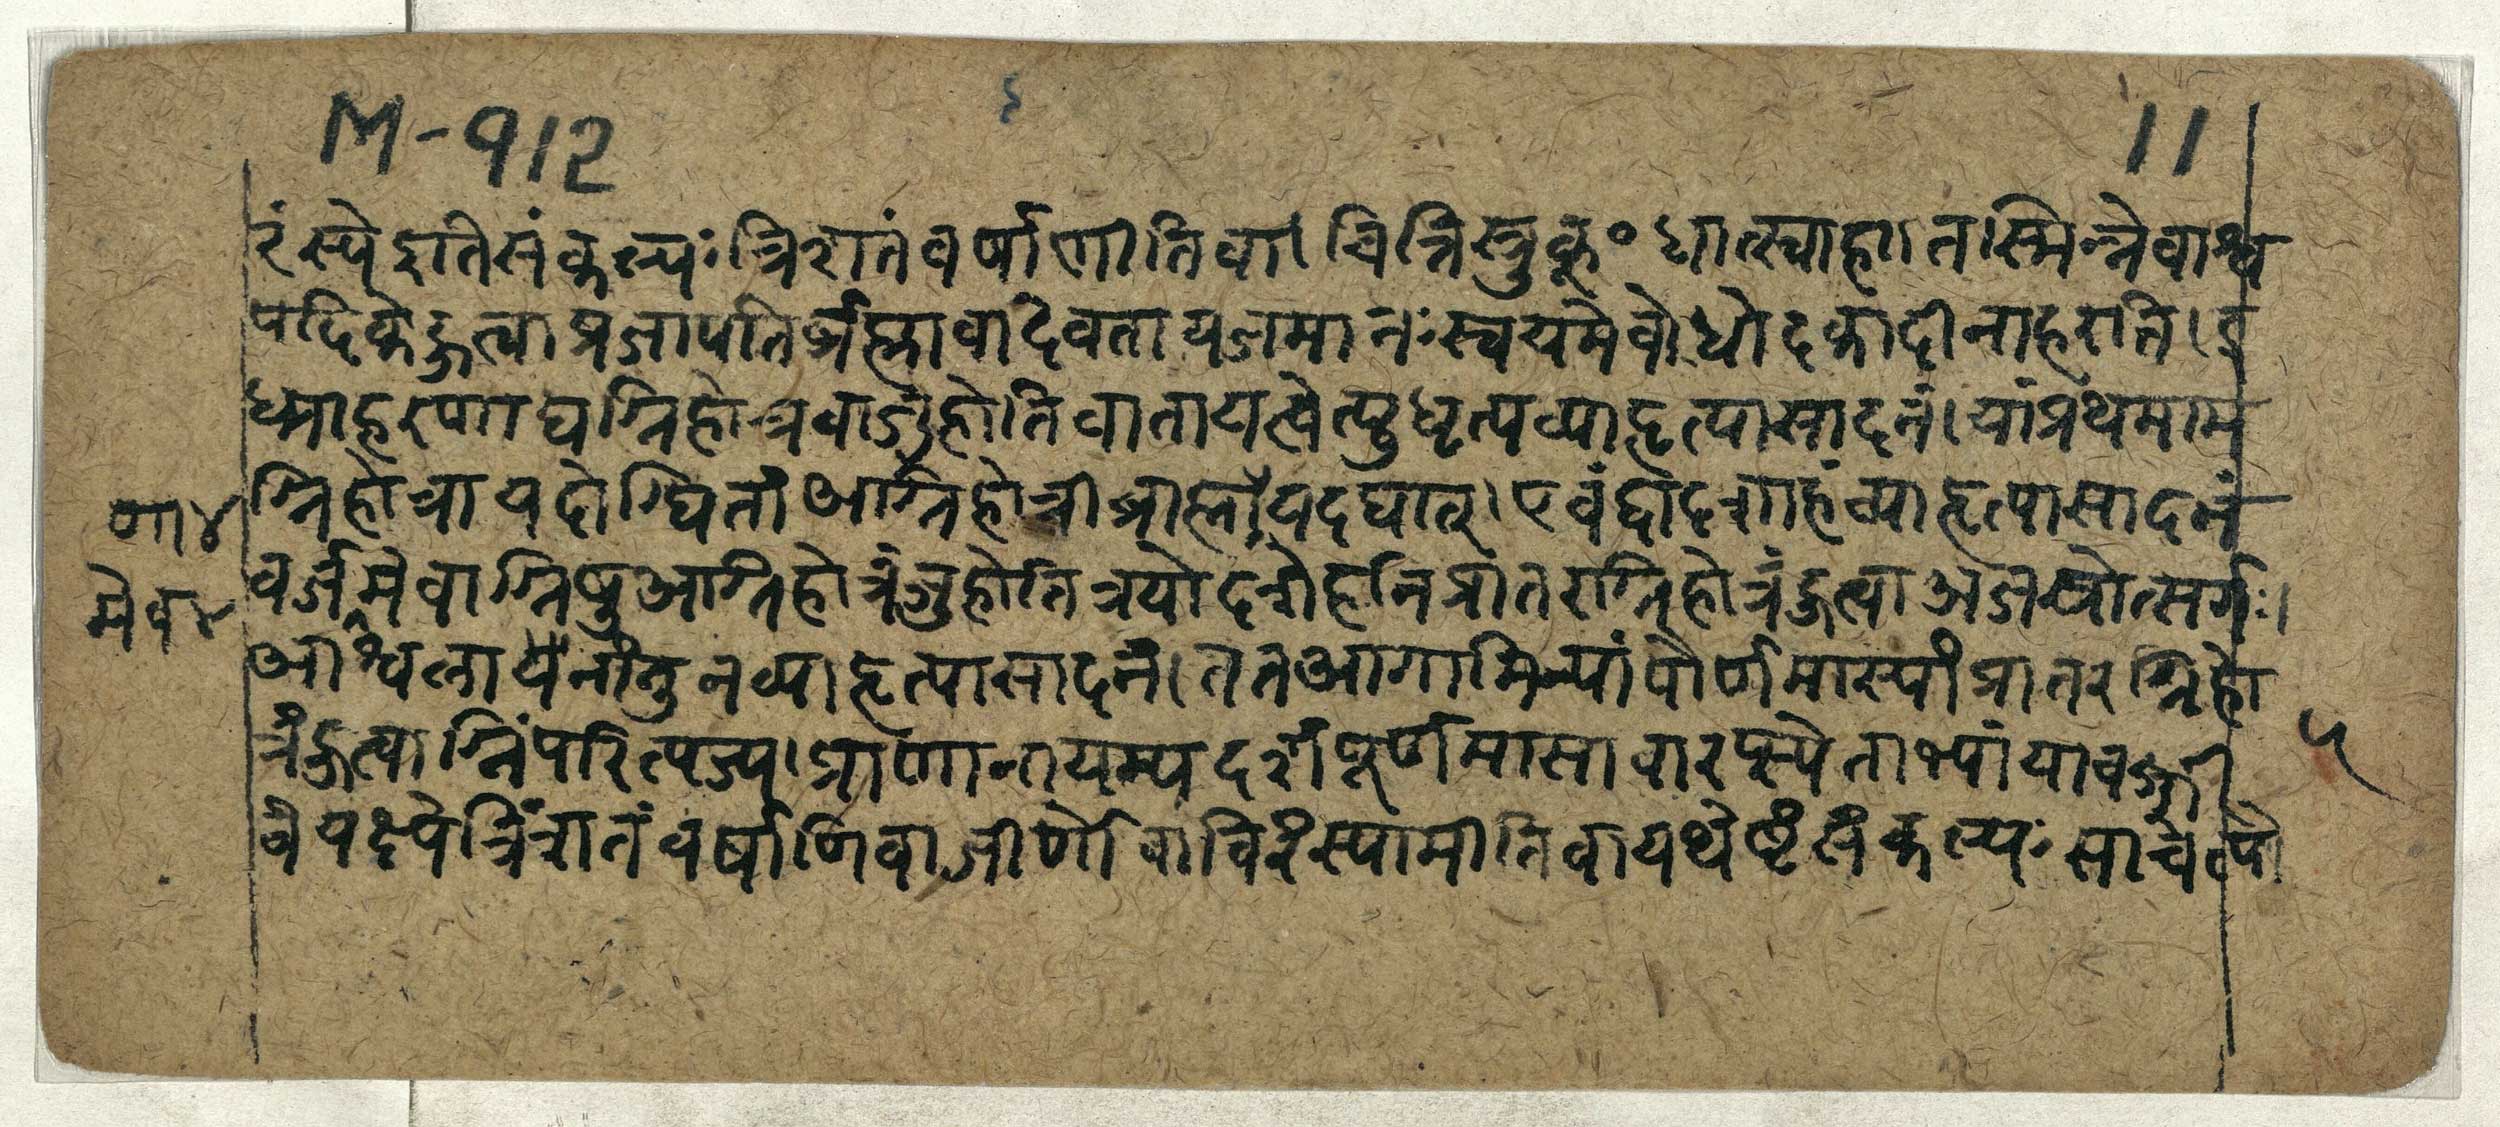 M-912
11
रंस्ये इति संकल्पः त्रिंशतं वर्षाणीति वा। चित्तिस्त्रुक्॰ धात्स्वाहा। तस्मिन्नेवाश्व
पदिके हुत्वा प्रजापतिर्ब्रह्मा वा देवता यजमानः स्वयमेवोधोदकादीनाहरति। इ
ध्माहरणाद्यग्निहोत्रवज्जुहोति वातायत्वेत्युधृत्य व्याहृत्यासादनं। यां प्रथमाम
ग्निहोत्राय दोग्धि तां अग्निहोत्री ब्राह्मणाय दद्यात्। एवं द्वादशाहं व्याहृत्यासादनं
णा ४
वर्जमेवाग्निषु अग्निहोत्रं जुहोति त्रयोदशेहनि प्रातरग्निहोत्रं हुत्वा अजस्रोत्सर्गः।
मेव ५
आश्वलायनानां तु न व्याहृत्यासादनं। तत आगामिन्यां पौर्णमास्यां प्रातरग्निहो
त्रं हुत्वाग्निं परित्यज्य। प्राणानायम्य दर्शपूर्णमासावारप्स्ये ताभ्यां यावज्जी
५
वं यक्ष्ये त्रिंशतं वर्षाणि वा जीर्णो वा विरंस्यामीति वा यथेष्टं संकल्पः सा च